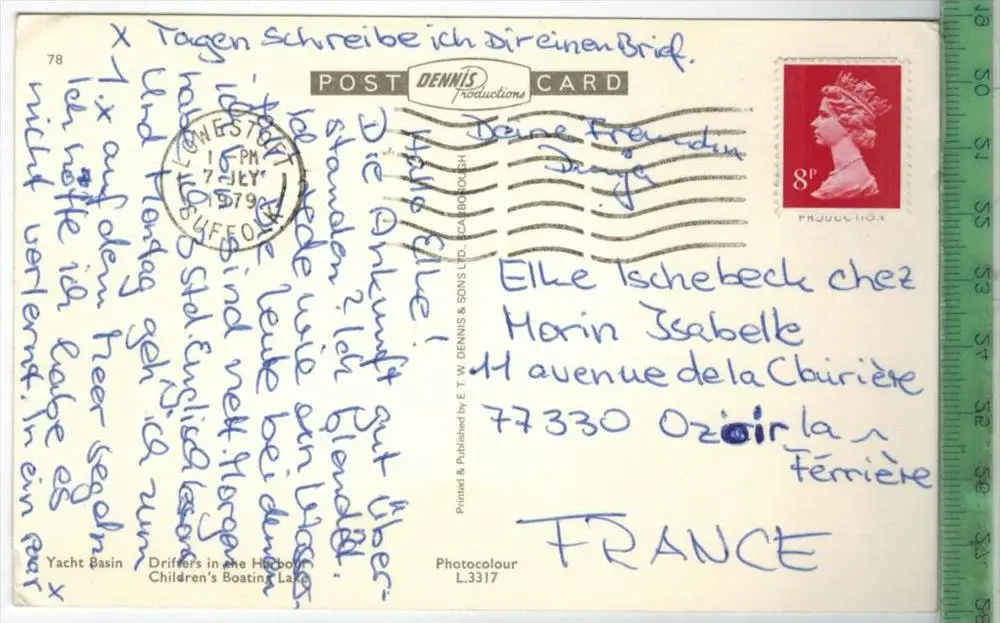 78
POST DENNIS Productions CARD
LOWESTOFT
PM
7 JLY
1979
SUFFOLK
8P
PRODUCTION
Hallo Elke!
Die Ankunft gut über-
standen? Ich blendend.
Ich rede wie ein Wasser-
Leute bei denen
ich sind nett. Morgen
hab Std. Englisch
Und Montag geh' ich zum
1. x auf dem Meer segeln
Ich hoffe ich habe es
nicht verlernt. In ein paar x
x Tagen schreibe ich Dir einen Brief.
Deine Freundin
Elke Tschebeck chez
Morin Isabelle
11 avenue de la Clairière
77330 Ozoir la
Férrière
FRANCE
Printed & Published by E. T. W. DENNIS & SONS LTD., SCARBOROUGH
Yacht Basin Drifters in the Harbour
Children's Boating Lake
Photocolour
L.3317